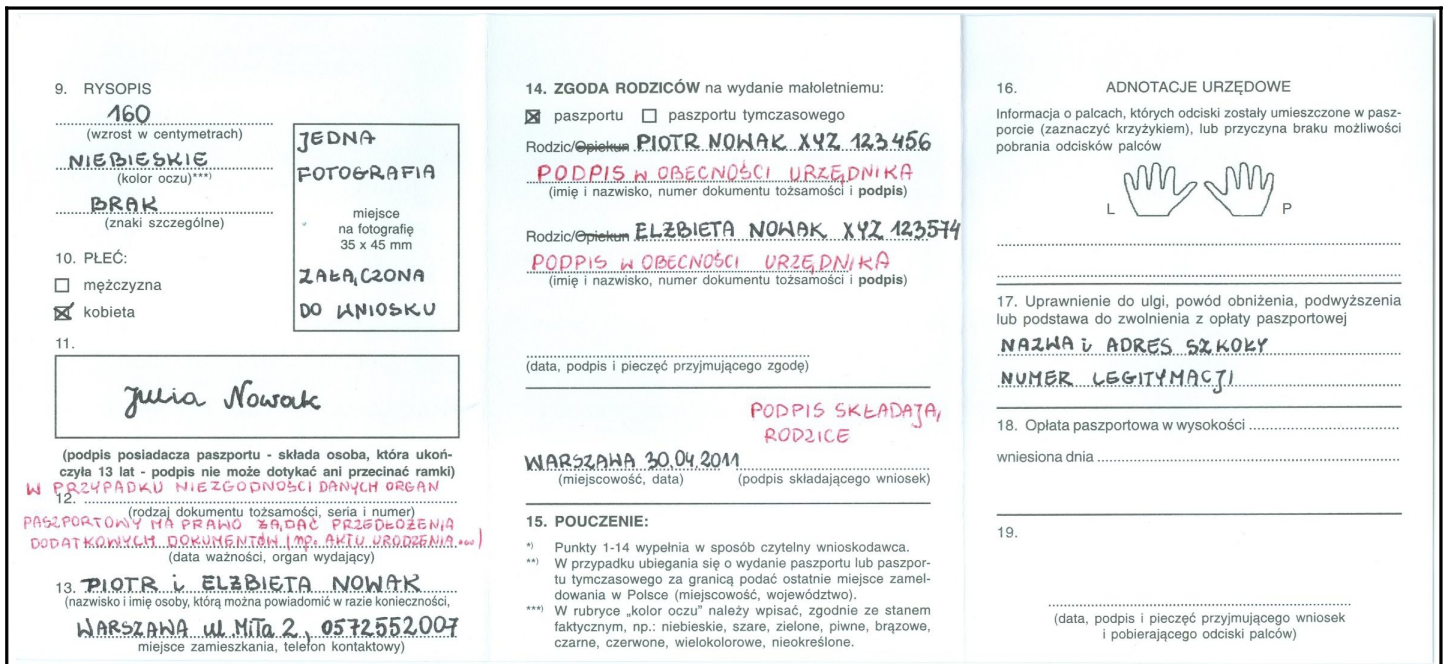 9. RYSOPIS
160
(wzrost w centymetrach)
NIEBIESKIE
(kolor oczu)***)
BRAK
(znaki szczególne)
JEDNA
FOTOGRAFIA
miejsce
na fotografię
35 x 45 mm
ZAŁĄCZONA
DO WNIOSKU
10. PŁEĆ:
mężczyzna
kobieta
11.
Julia Nowak
(podpis posiadacza paszportu - składa osoba, która ukoń-
czyła 13 lat - podpis nie może dotykać ani przecinać ramki)
W PRZYPADKU NIEZGODNOŚCI DANYCH ORGAN
12.
(rodzaj dokumentu tożsamości, seria i numer)
PASZPORTOWY MA PRAWO ŻĄDAĆ PRZEDŁOŻENIA
DODATKOWYCH DOKUMENTÓW (np. AKTU URODZENIA...)
(data ważności, organ wydający)
13. PIOTR i ELŻBIETA NOWAK
(nazwisko i imię osoby, którą można powiadomić w razie konieczności,
WARSZAWA ul. MiŁa 2, 0572552007
miejsce zamieszkania, telefon kontaktowy)
14. ZGODA RODZICÓW na wydanie małoletniemu:
paszportu paszportu tymczasowego
Rodzic/Opiekun PIOTR NOWAK XYZ 123456
PODPIS W OBECNOŚCI URZĘDNIKA
(imię i nazwisko, numer dokumentu tożsamości i podpis)
Rodzic/Opiekun ELŻBIETA NOWAK XYZ 123574
PODPIS W OBECNOŚCI URZĘDNIKA
(imię i nazwisko, numer dokumentu tożsamości i podpis)
(data, podpis i pieczęć przyjmującego zgodę)
PODPIS SKŁADAJĄ
RODZICE
WARSZAWA 30.04.2011
(miejscowość, data) (podpis składającego wniosek)
15. POUCZENIE:
*) Punkty 1-14 wypełnia w sposób czytelny wnioskodawca.
**) W przypadku ubiegania się o wydanie paszportu lub paszpor-
tu tymczasowego za granicą podać ostatnie miejsce zamel-
dowania w Polsce (miejscowość, województwo).
***) W rubryce „kolor oczu" należy wpisać, zgodnie ze stanem
faktycznym, np.: niebieskie, szare, zielone, piwne, brązowe,
czarne, czerwone, wielokolorowe, nieokreślone.
16. ADNOTACJE URZĘDOWE
Informacja o palcach, których odciski zostały umieszczone w pasz-
porcie (zaznaczyć krzyżykiem), lub przyczyna braku możliwości
pobrania odcisków palców
L P
17. Uprawnienie do ulgi, powód obniżenia, podwyższenia
lub podstawa do zwolnienia z opłaty paszportowej
NAZWA i ADRES SZKOŁY
NUMER LEGITYMACJI
18. Opłata paszportowa w wysokości
wniesiona dnia
19.
(data, podpis i pieczęć przyjmującego wniosek
i pobierającego odciski palców)